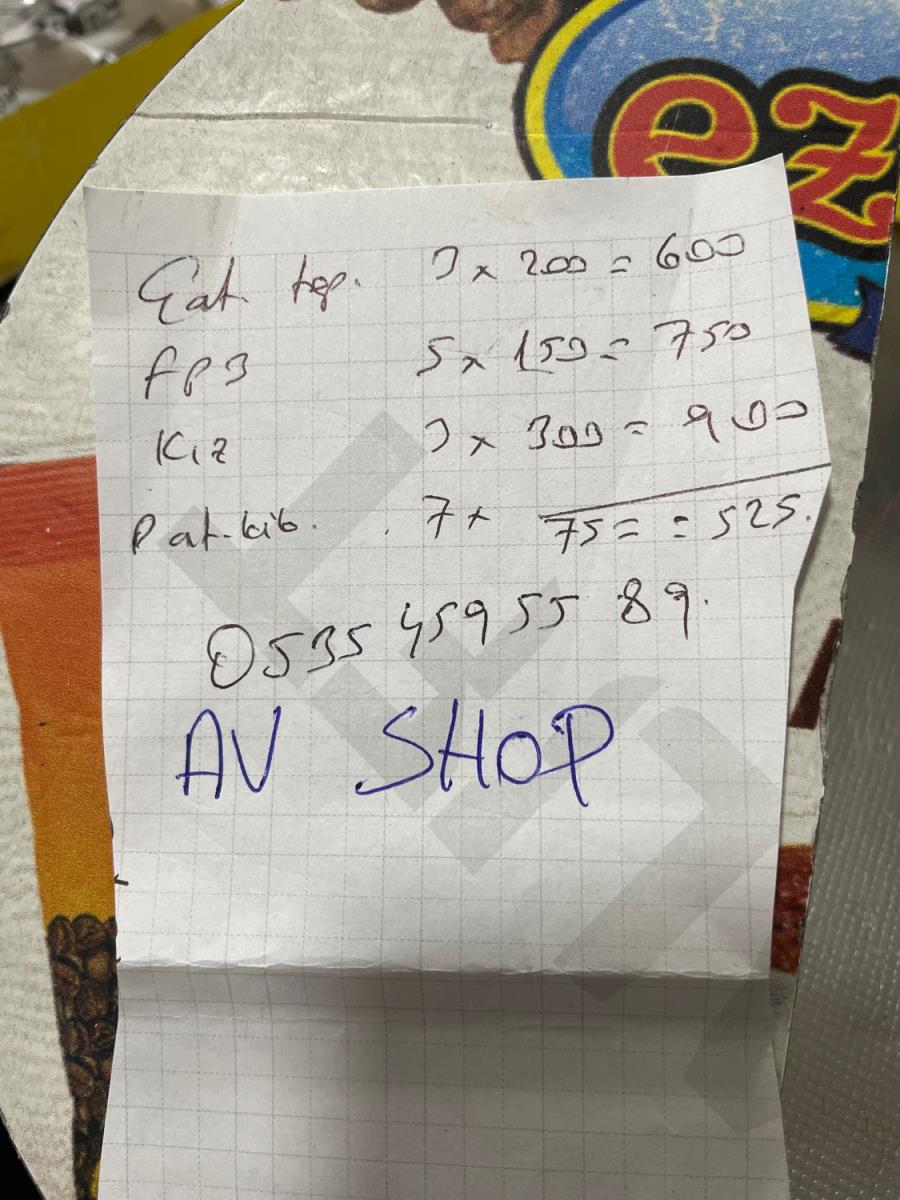 ez
Çat. top. 3 x 200 = 600
FP3 5 x 150 = 750
Kız 3 x 300 = 900
Pat. kib. 7 x 75 = = 525.
0535 459 55 89.
AV SHOP